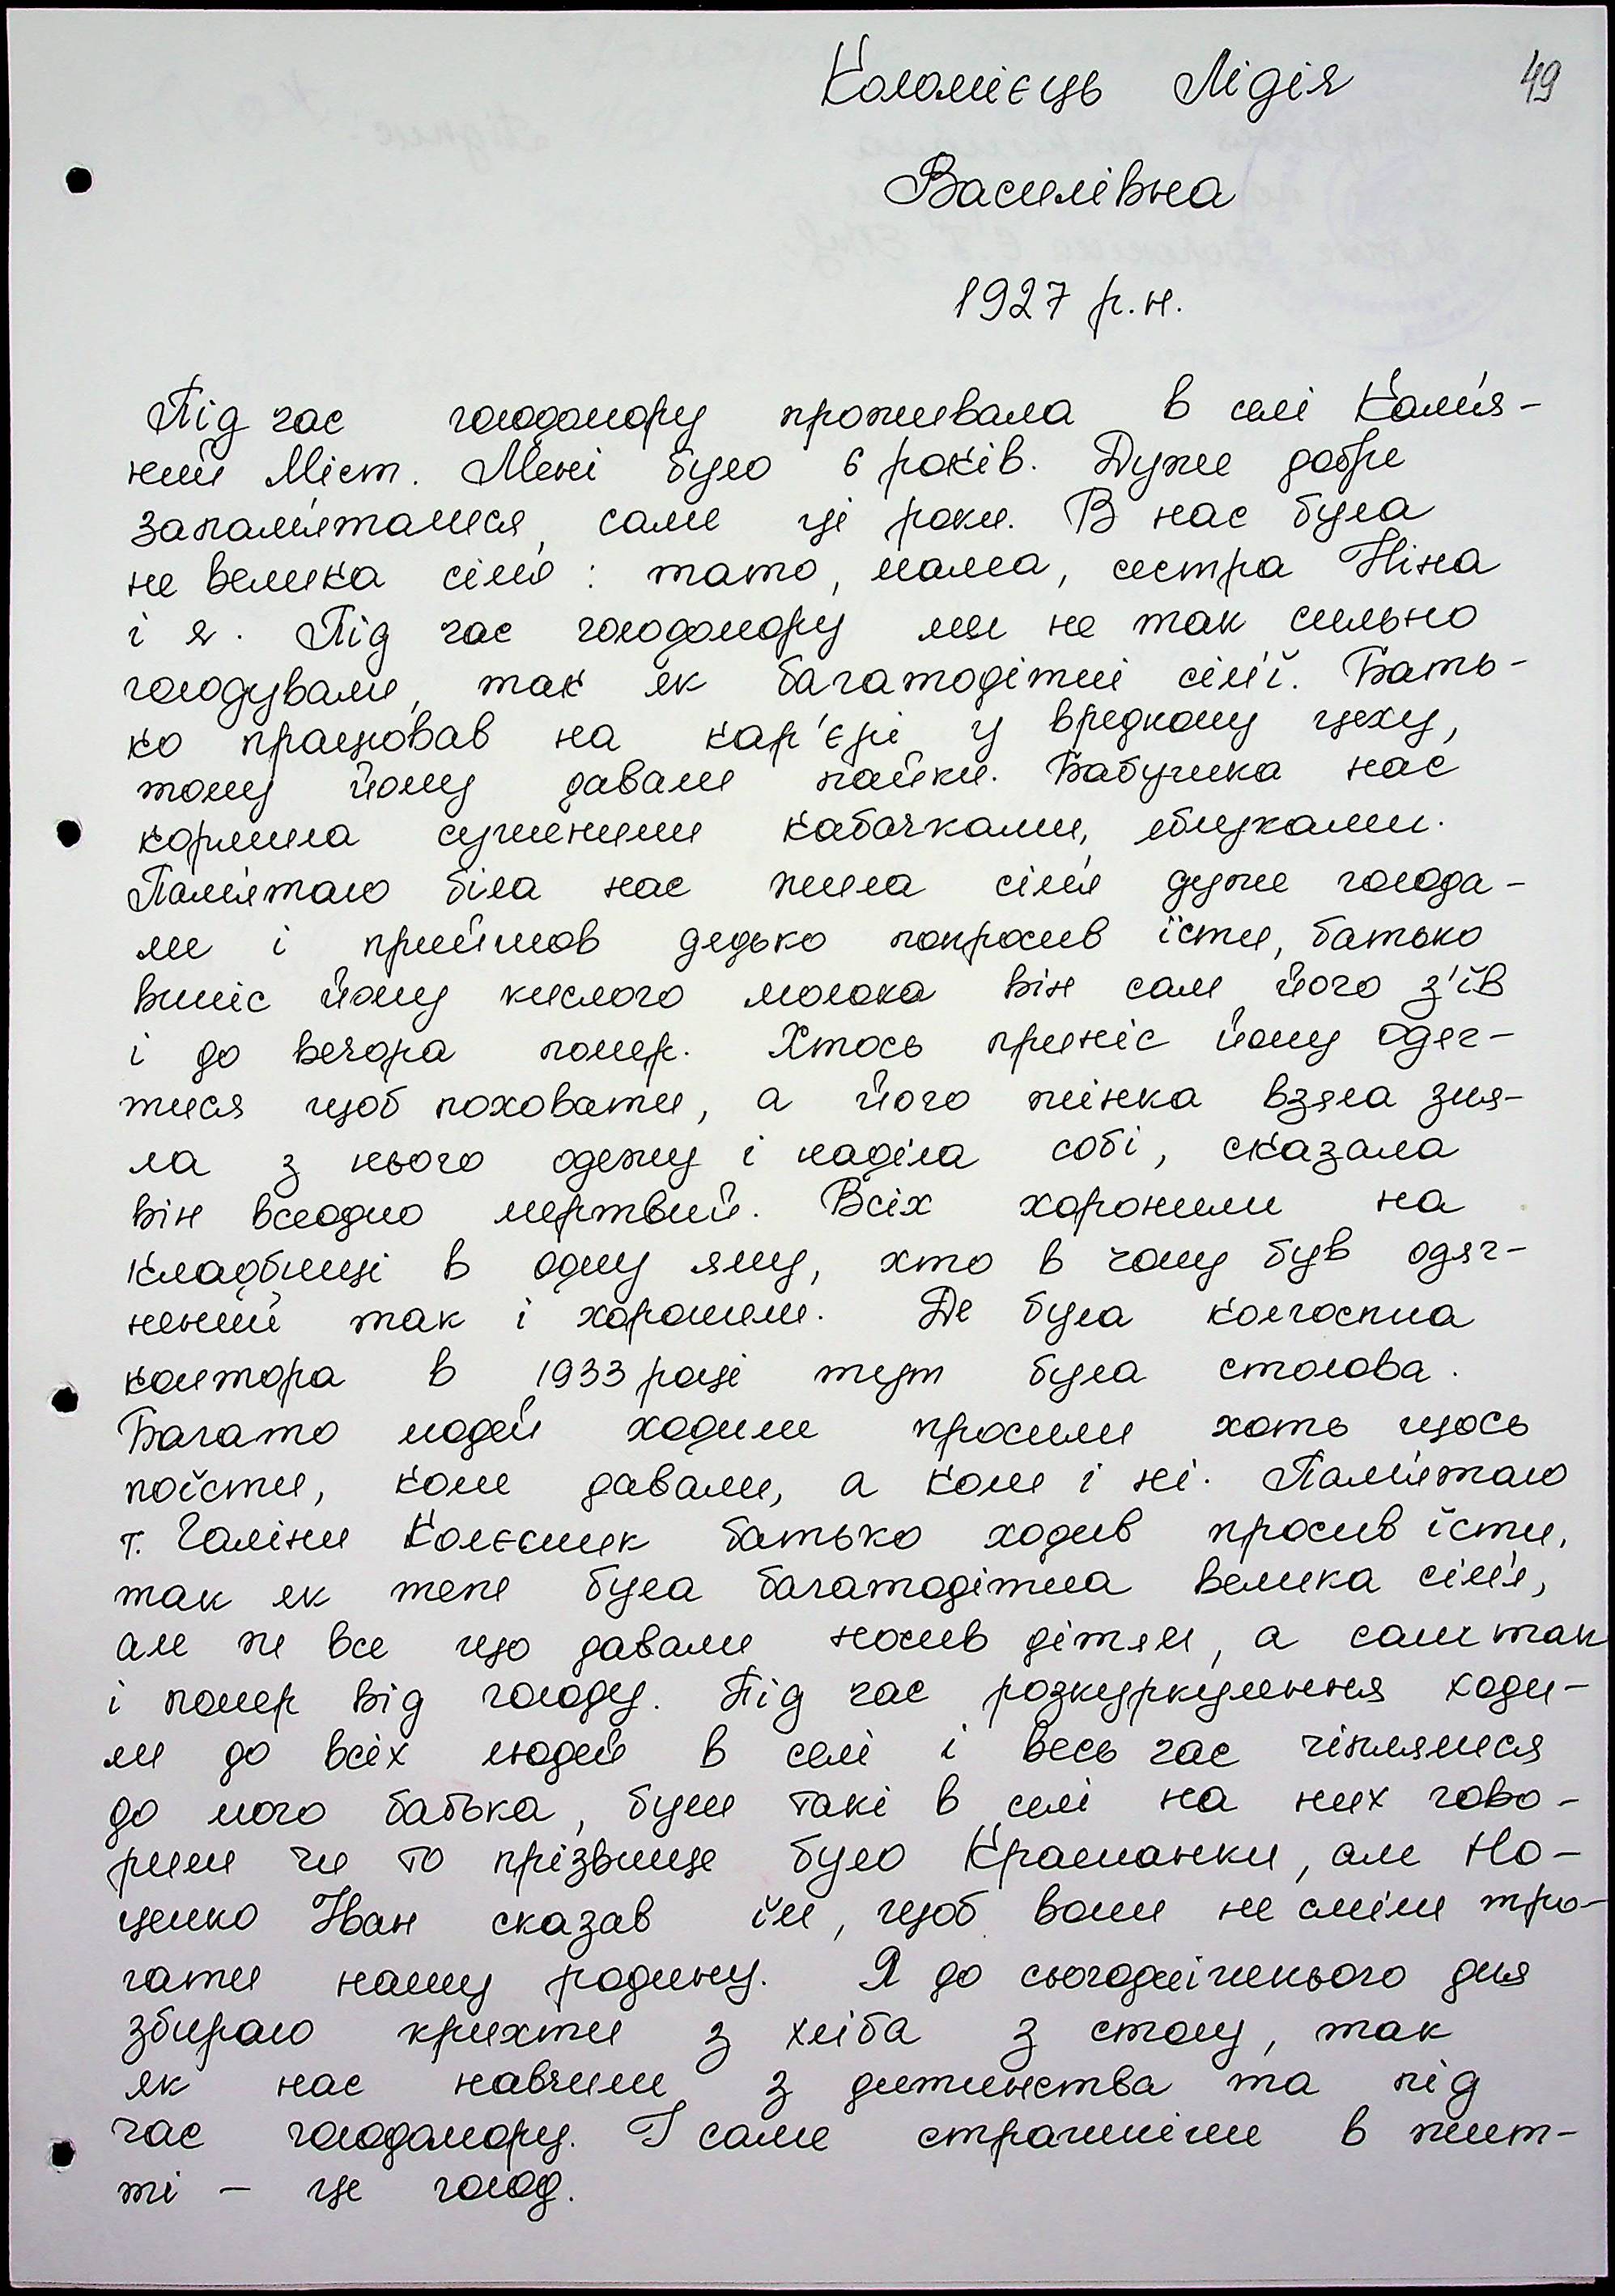 Коломієць Лідія 49
Василівна
1927 р.н.
Під час голодомору проживала в селі Кам'я-
ний Міст. Мені було 6 років. Дуже добре
запам'яталися, саме ці роки. В нас була
не велика сім'я : тато, мама, сестра Ніна
і я. Під час голодомору ми не так сильно
голодували, так як багатодітні сім'ї. Бать-
ко працював на кар'єрі у вредному цеху,
тому йому давали пайки. Бабушка нас
кормила сушеними кабачками, яблуками.
Пам'ятаю біла нас жила сім'я дуже голода-
ли і прийшов дядько попросив їсти, батько
виніс йому кислого молока він сам його з'їв
і до вечора помер. Хтось приніс йому одяг-
тися щоб поховати, а його жінка взяла зня-
ла з нього одежу і наділа собі, сказала
він всеодно мертвий. Всіх хоронили на
кладбищі в одну яму, хто в чому був одяг-
нений так і хоронили. Де була колгоспна
контора в 1933 році тут була столова.
Багато людей ходили просили хоть щось
поїсти, коли давали, а коли і ні. Пам'ятаю
т. Галіни Колєсник батько ходив просив їсти,
так як теж була багатодітна велика сім'я,
але ж все що давали носив дітям, а сам так
і помер від голоду. Під час розкуркулення ходи-
ли до всіх людей в селі і весь час чіплялися
до мого батька, були такі в селі на них гово-
рили чи то прізвище було Крашанки, але Но-
ценко Іван сказав їм, щоб вони не сміли тро-
гати нашу родину. Я до сьогоднішнього дня
збираю крихти з хліба з столу, так
як нас навчили з дитинства та під
час голодомору. І саме страшніше в жит-
ті – це голод.